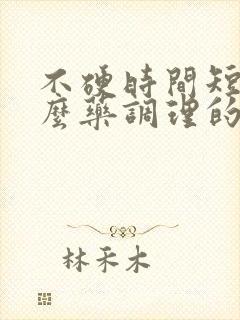 不硬時間短
麼藥調理的
林禾木